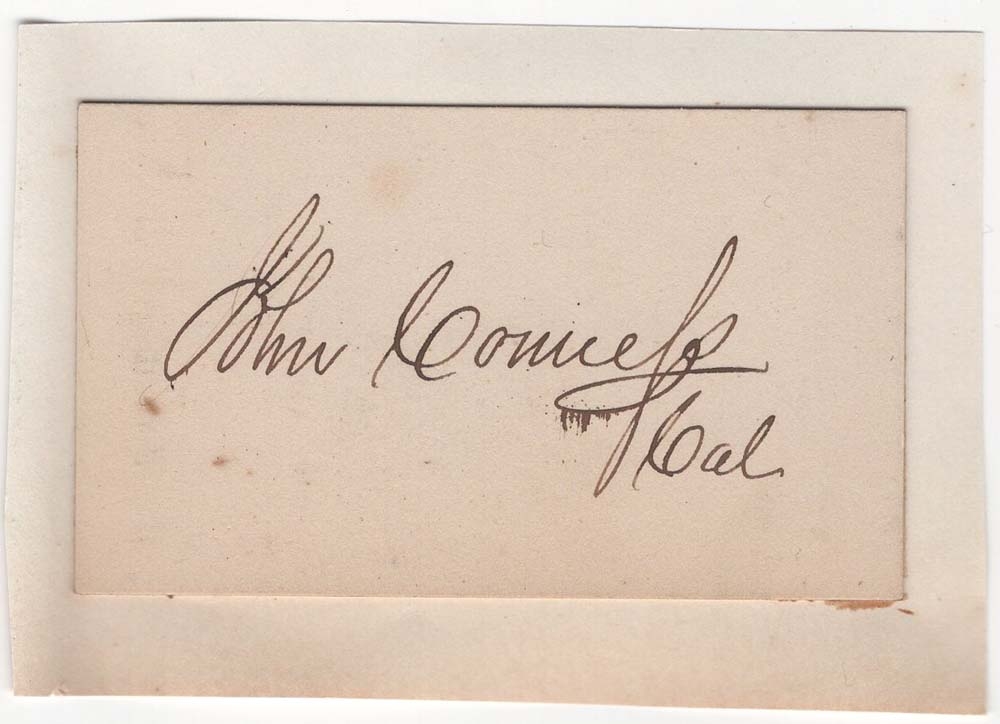 John Conness
Cal